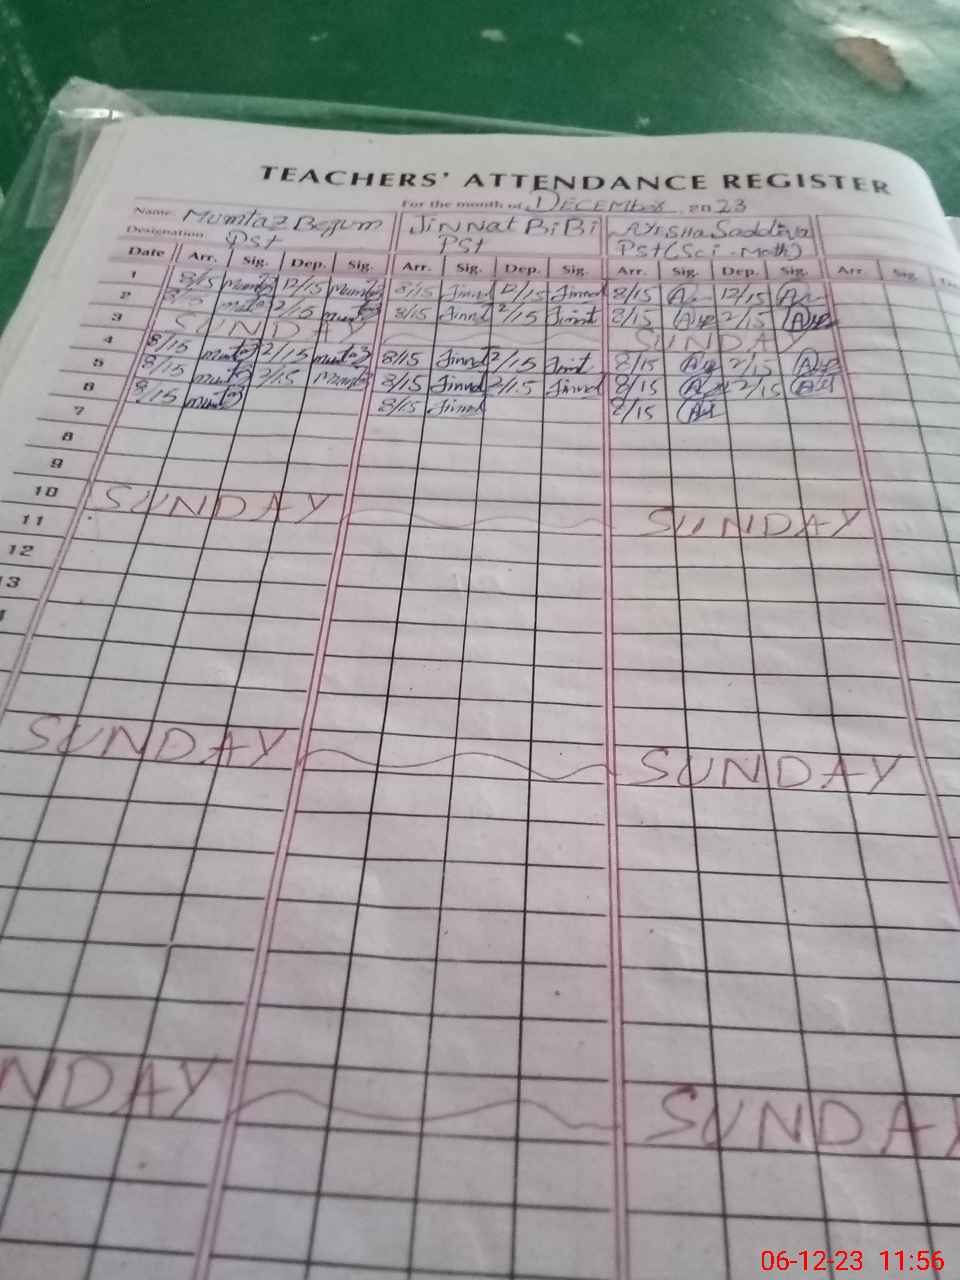 TEACHERS' ATTENDANCE REGISTER
For the month of DECEMBER 2023
Name Mumtaz Begum JiNNat BiBi Ayisha Saddiqa
Designation Pst PSt Pst (Sci-Math)
Date Arr. Sig. Dep. Sig. Arr. Sig. Dep. Sig. Arr. Sig. Dep. Sig. Arr. Sig.
1 8/15 Mumtaz 12/15 Mumtaz 8/15 Jinnat 12/15 Jinnat 8/15 12/15
2 8/15 Mumtaz 2/15 Mumtaz 8/15 Jinnat 2/15 Jinnat 8/15 2/15
3 SUNDAY SUNDAY
4 8/15 Mumtaz 2/15 Mumtaz 8/15 Jinnat 2/15 Jinnat 8/15 2/15
5 8/15 Mumtaz 2/15 Mumtaz 8/15 Jinnat 2/15 Jinnat 8/15 2/15
6 8/15 Mumtaz 8/15 Jinnat 8/15
7
8
9
10 SUNDAY SUNDAY
11
12
13
SUNDAY SUNDAY
NDAY SUNDAY
06-12-23 11:56